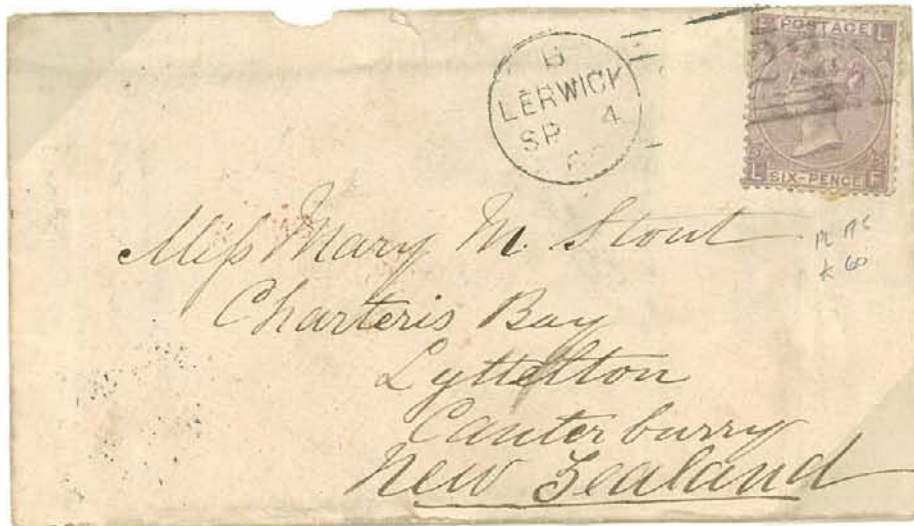 B
LERWICK
SP 4
POSTAGE
L
L
SIX-PENCE
F
Miss Mary M. Stout
Charteris Bay
Lyttelton
Canterburry
New Zealand